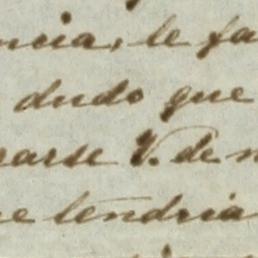 ncia, le fa
dudo que
rarse V. de n
e tendria